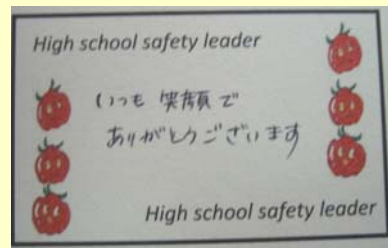 High school safety leader
いつも 笑顔で
ありがとうございます
High school safety leader